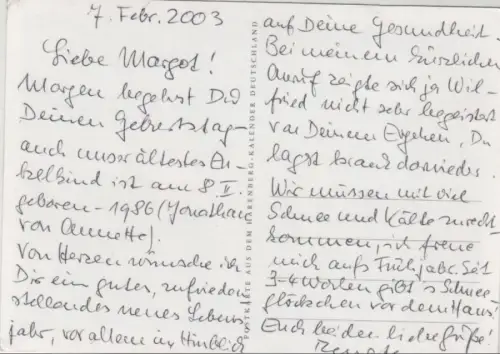 7. Febr. 2003
Liebe Margot!
Morgen begehst Du
Deinen Geburtstag -
auch unser ältestes En-
kelkind ist am 8. II.
geboren - 1986 (Jonathan
von Annette).
Von Herzen wünsche ich
Dir ein gutes, zufrieden
stellendes neues Lebens
jahr, vor allem im Hinblick
POSTKARTE AUS DEM HARENBERG-KALENDER DEUTSCHLAND
auf Deine Gesundheit.
Bei meinem kürzlichen
Anruf zeigte sich ja Wil-
fried nicht sehr begeistert
von Deinem Ergehen, Du
lagst krank darnieder.
Wir müssen mit viel
Schnee und Kälte zurecht-
kommen, ich freue
mich aufs Frühjahr. Seit
3-4 Wochen gibt's Schnee-
glöckchen vor dem Haus!
Euch beiden liebe Grüße!